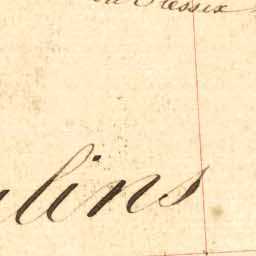 du Plessix
ulins